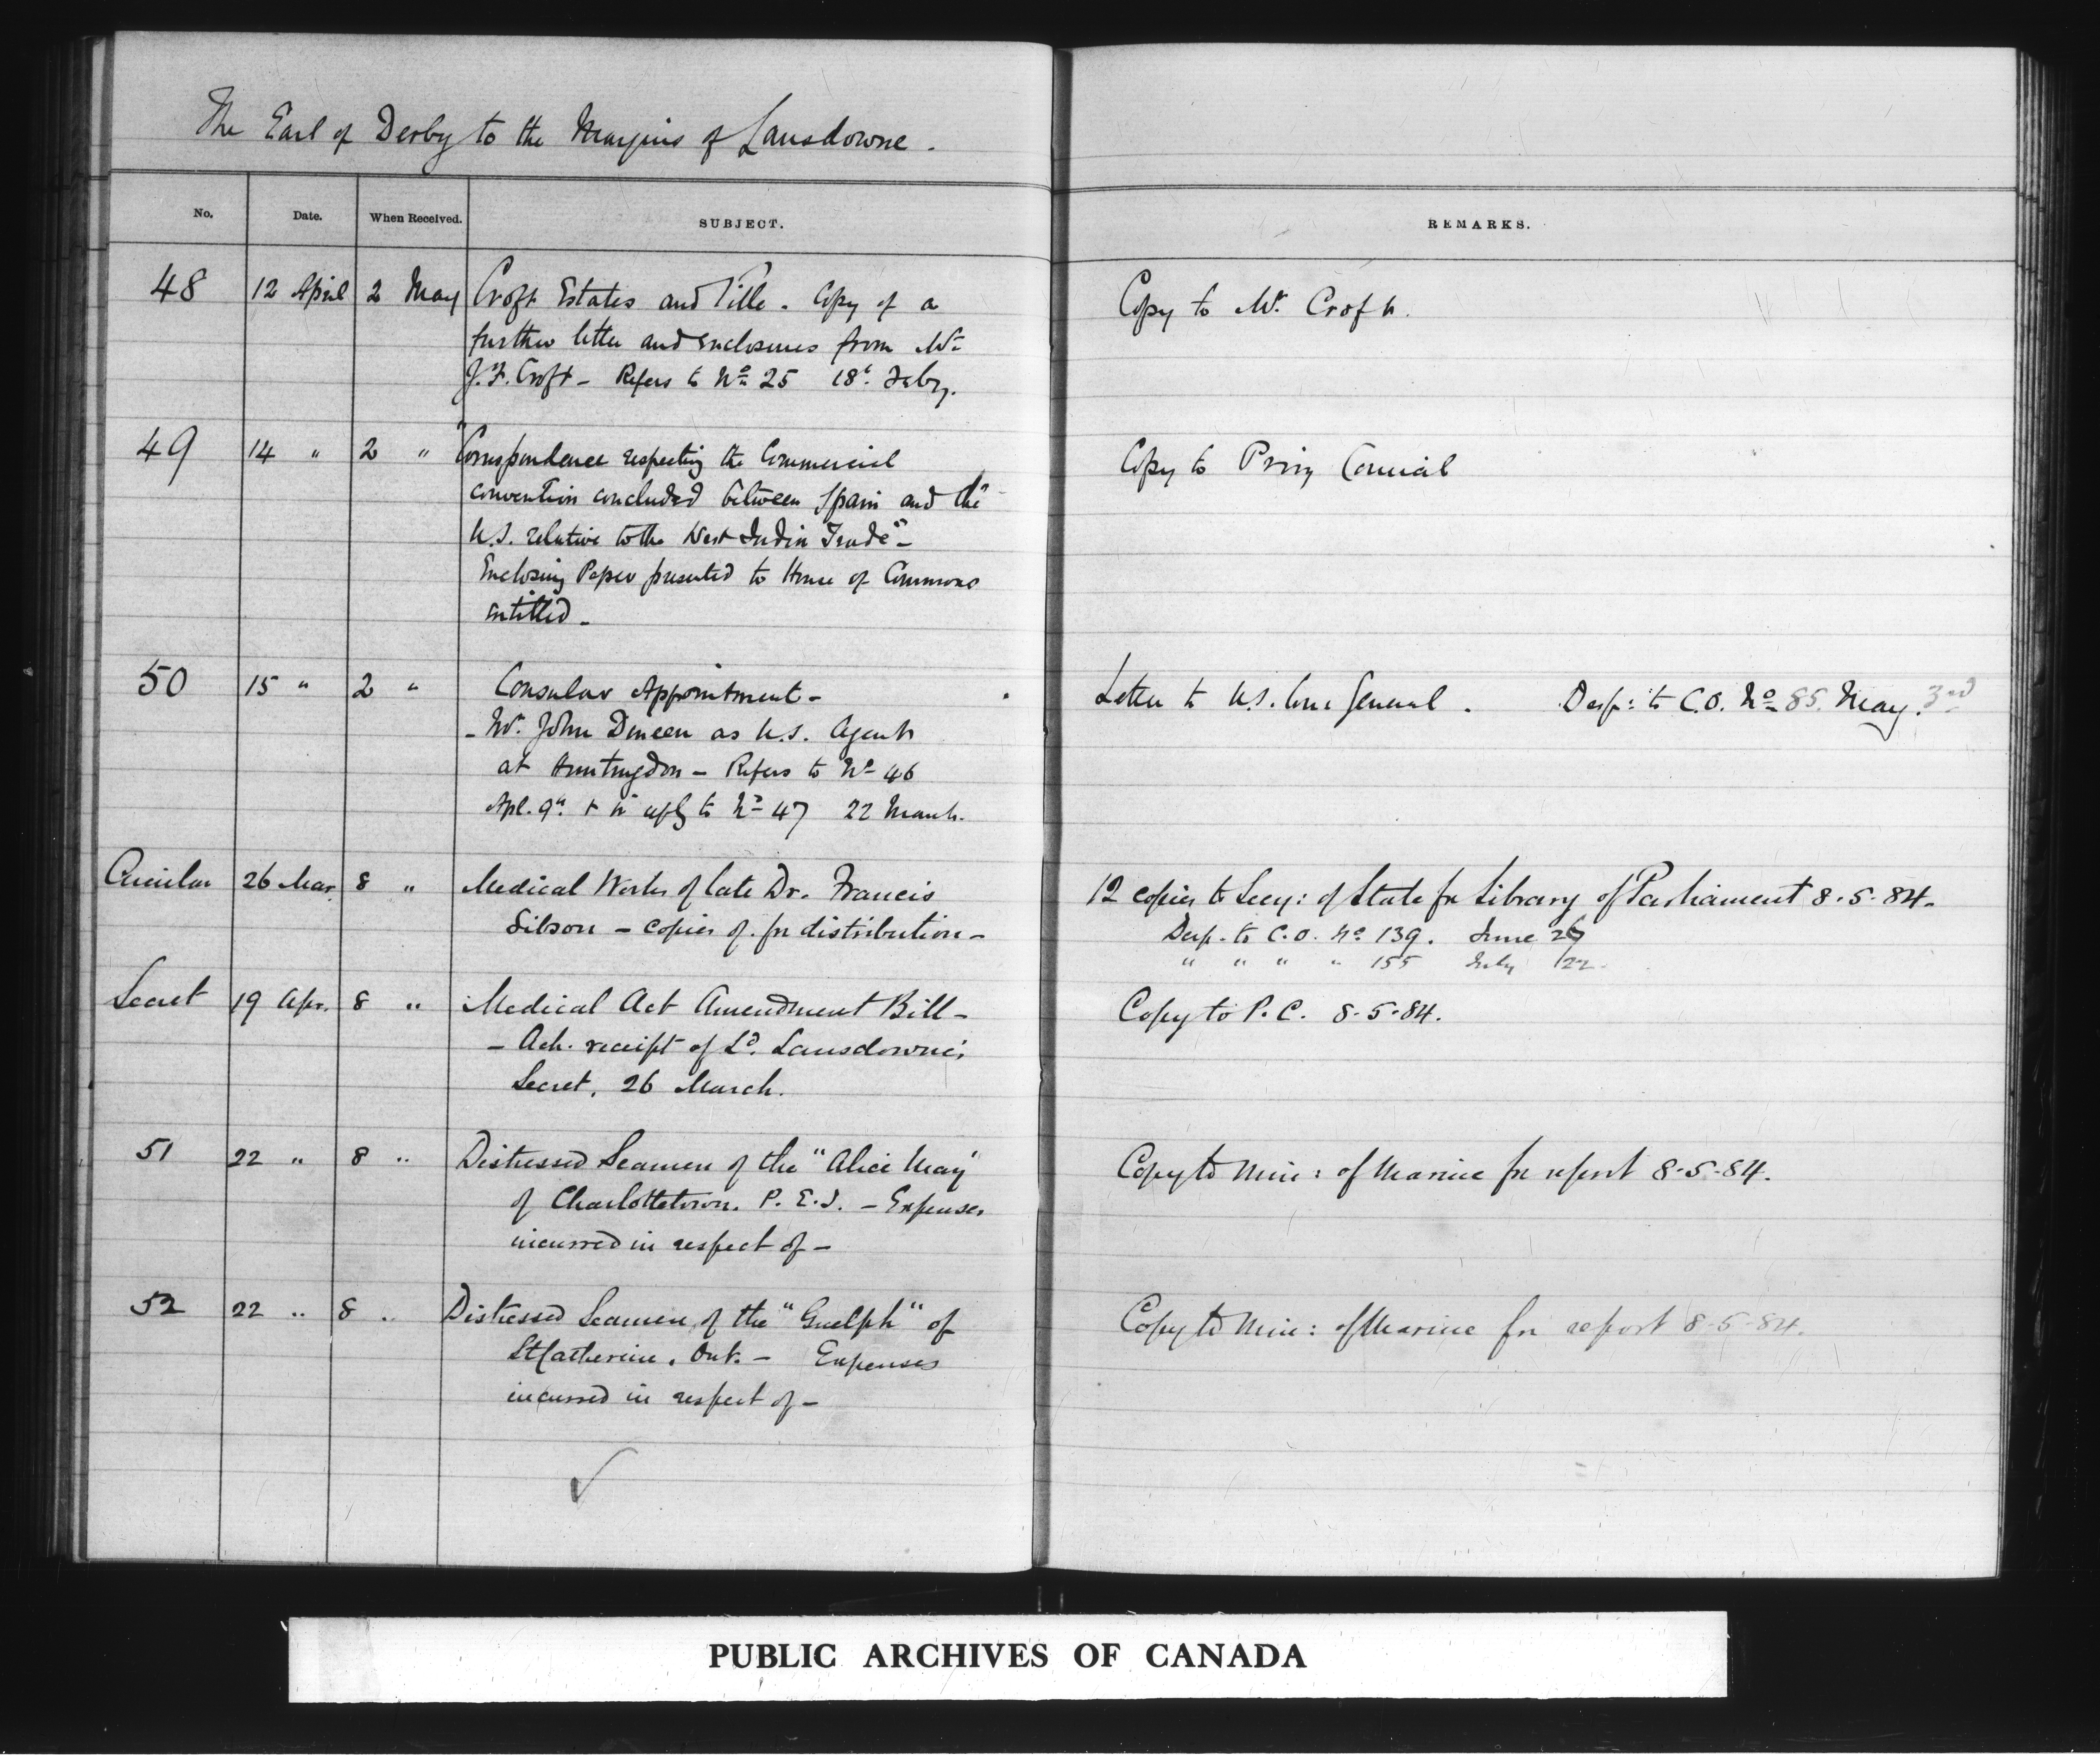 The Earl of Derby to the Marquis of Lansdowne.
No. Date. When Received. SUBJECT. REMARKS.
48 12 April 2 May Croft Estates and Title - Copy of a Copy to Mr. Croft.
further letter and enclosures from Mr
J.F. Croft - Refers to No 25 18t. Feby.
49 14 " 2 " "Correspondence respecting the Commercial Copy to Privy Council
convention concluded between Spain and the
U.S. relative to the West India Trade" -
Enclosing Paper presented to House of Commons
entitled -
50 15 " 2 " Consular Appointment - Letter to U.S. Con General. Desp: to C.O. No 85. May. 3rd
- Mr. John Dineen as U.S. Agent
at Huntingdon - Refers to No 46
Apl. 9th. & in reply to No 47 22 March.
Circular 26 Mar. 8 " Medical Works of late Dr. Francis 12 copies to Secy: of State for Library of Parliament 8.5.84.
Sibson - copies of. for distribution - Desp. to C.O. No 139. June 26
" " " " 155 July 22.
Secret 19 Apr. 8 " Medical Act Amendment Bill - Copy to P.C. 8.5.84.
- Ack. receipt of Ld. Lansdowne's
Secret. 26 March.
51 22 " 8 " Distressed Seamen of the "Alice May" Copy to Min: of Marine for report 8.5.84.
of Charlottetown. P.E.I. - Expenses
incurred in respect of -
52 22 " 8 " Distressed Seamen of the "Guelph" of Copy to Min: of Marine for report 8.5.84.
St Catherine. Ont. - Expenses
incurred in respect of -
PUBLIC ARCHIVES OF CANADA